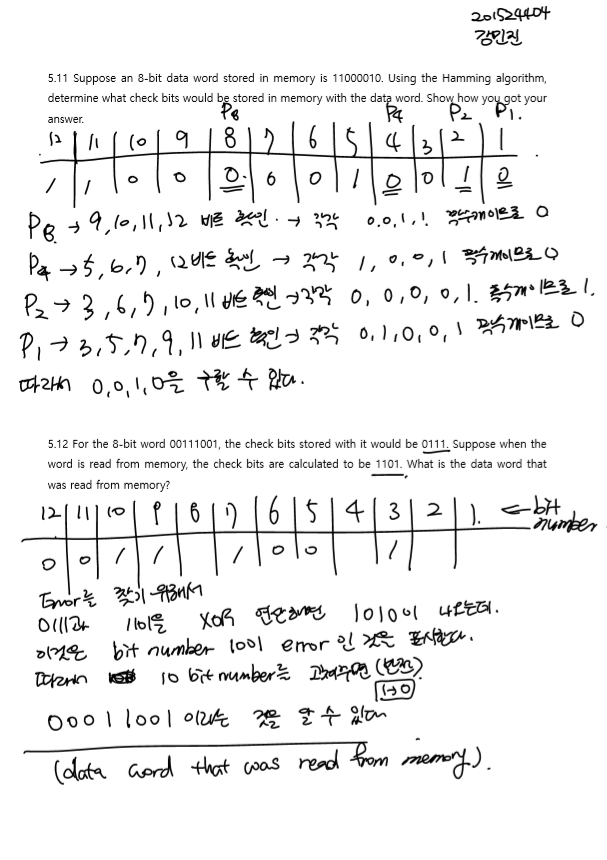 201524404
강민진
5.11 Suppose an 8-bit data word stored in memory is 11000010. Using the Hamming algorithm,
determine what check bits would be stored in memory with the data word. Show how you got your
answer.
P8 P4 P2 P1.
12 11 10 9 8 7 6 5 4 3 2 1
1 1 0 0 0. 0 0 1 0 0 1 0
P8 → 9, 10, 11, 12 비트 확인. → 각각 0.0,1,1. 짝수개이므로 0
P4 → 5, 6, 7, 12비트 확인 → 각각 1, 0, 0, 1 짝수개이므로 0
P2 → 3, 6, 7, 10, 11 비트 확인 → 각각 0, 0, 0, 0, 1. 홀수개이므로 1.
P1 → 3, 5, 7, 9, 11 비트 확인 → 각각 0, 1, 0, 0, 1 짝수개이므로 0
따라서 0, 0, 1, 0을 구할 수 있다.
5.12 For the 8-bit word 00111001, the check bits stored with it would be 0111. Suppose when the
word is read from memory, the check bits are calculated to be 1101. What is the data word that
was read from memory?
12 11 10 9 8 7 6 5 4 3 2 1. ← bit number
0 0 1 1 1 0 0 1
Error를 찾기 위해서
0111과 1101을 XOR 연산하면 1010이 나오는데.
이것은 bit number 1001 error 인 것은 표시한다.
따라서 10 bit number를 고쳐주면 (반전).
1→0
00011001 이라는 것을 알 수 있다
(data word that was read from memory).